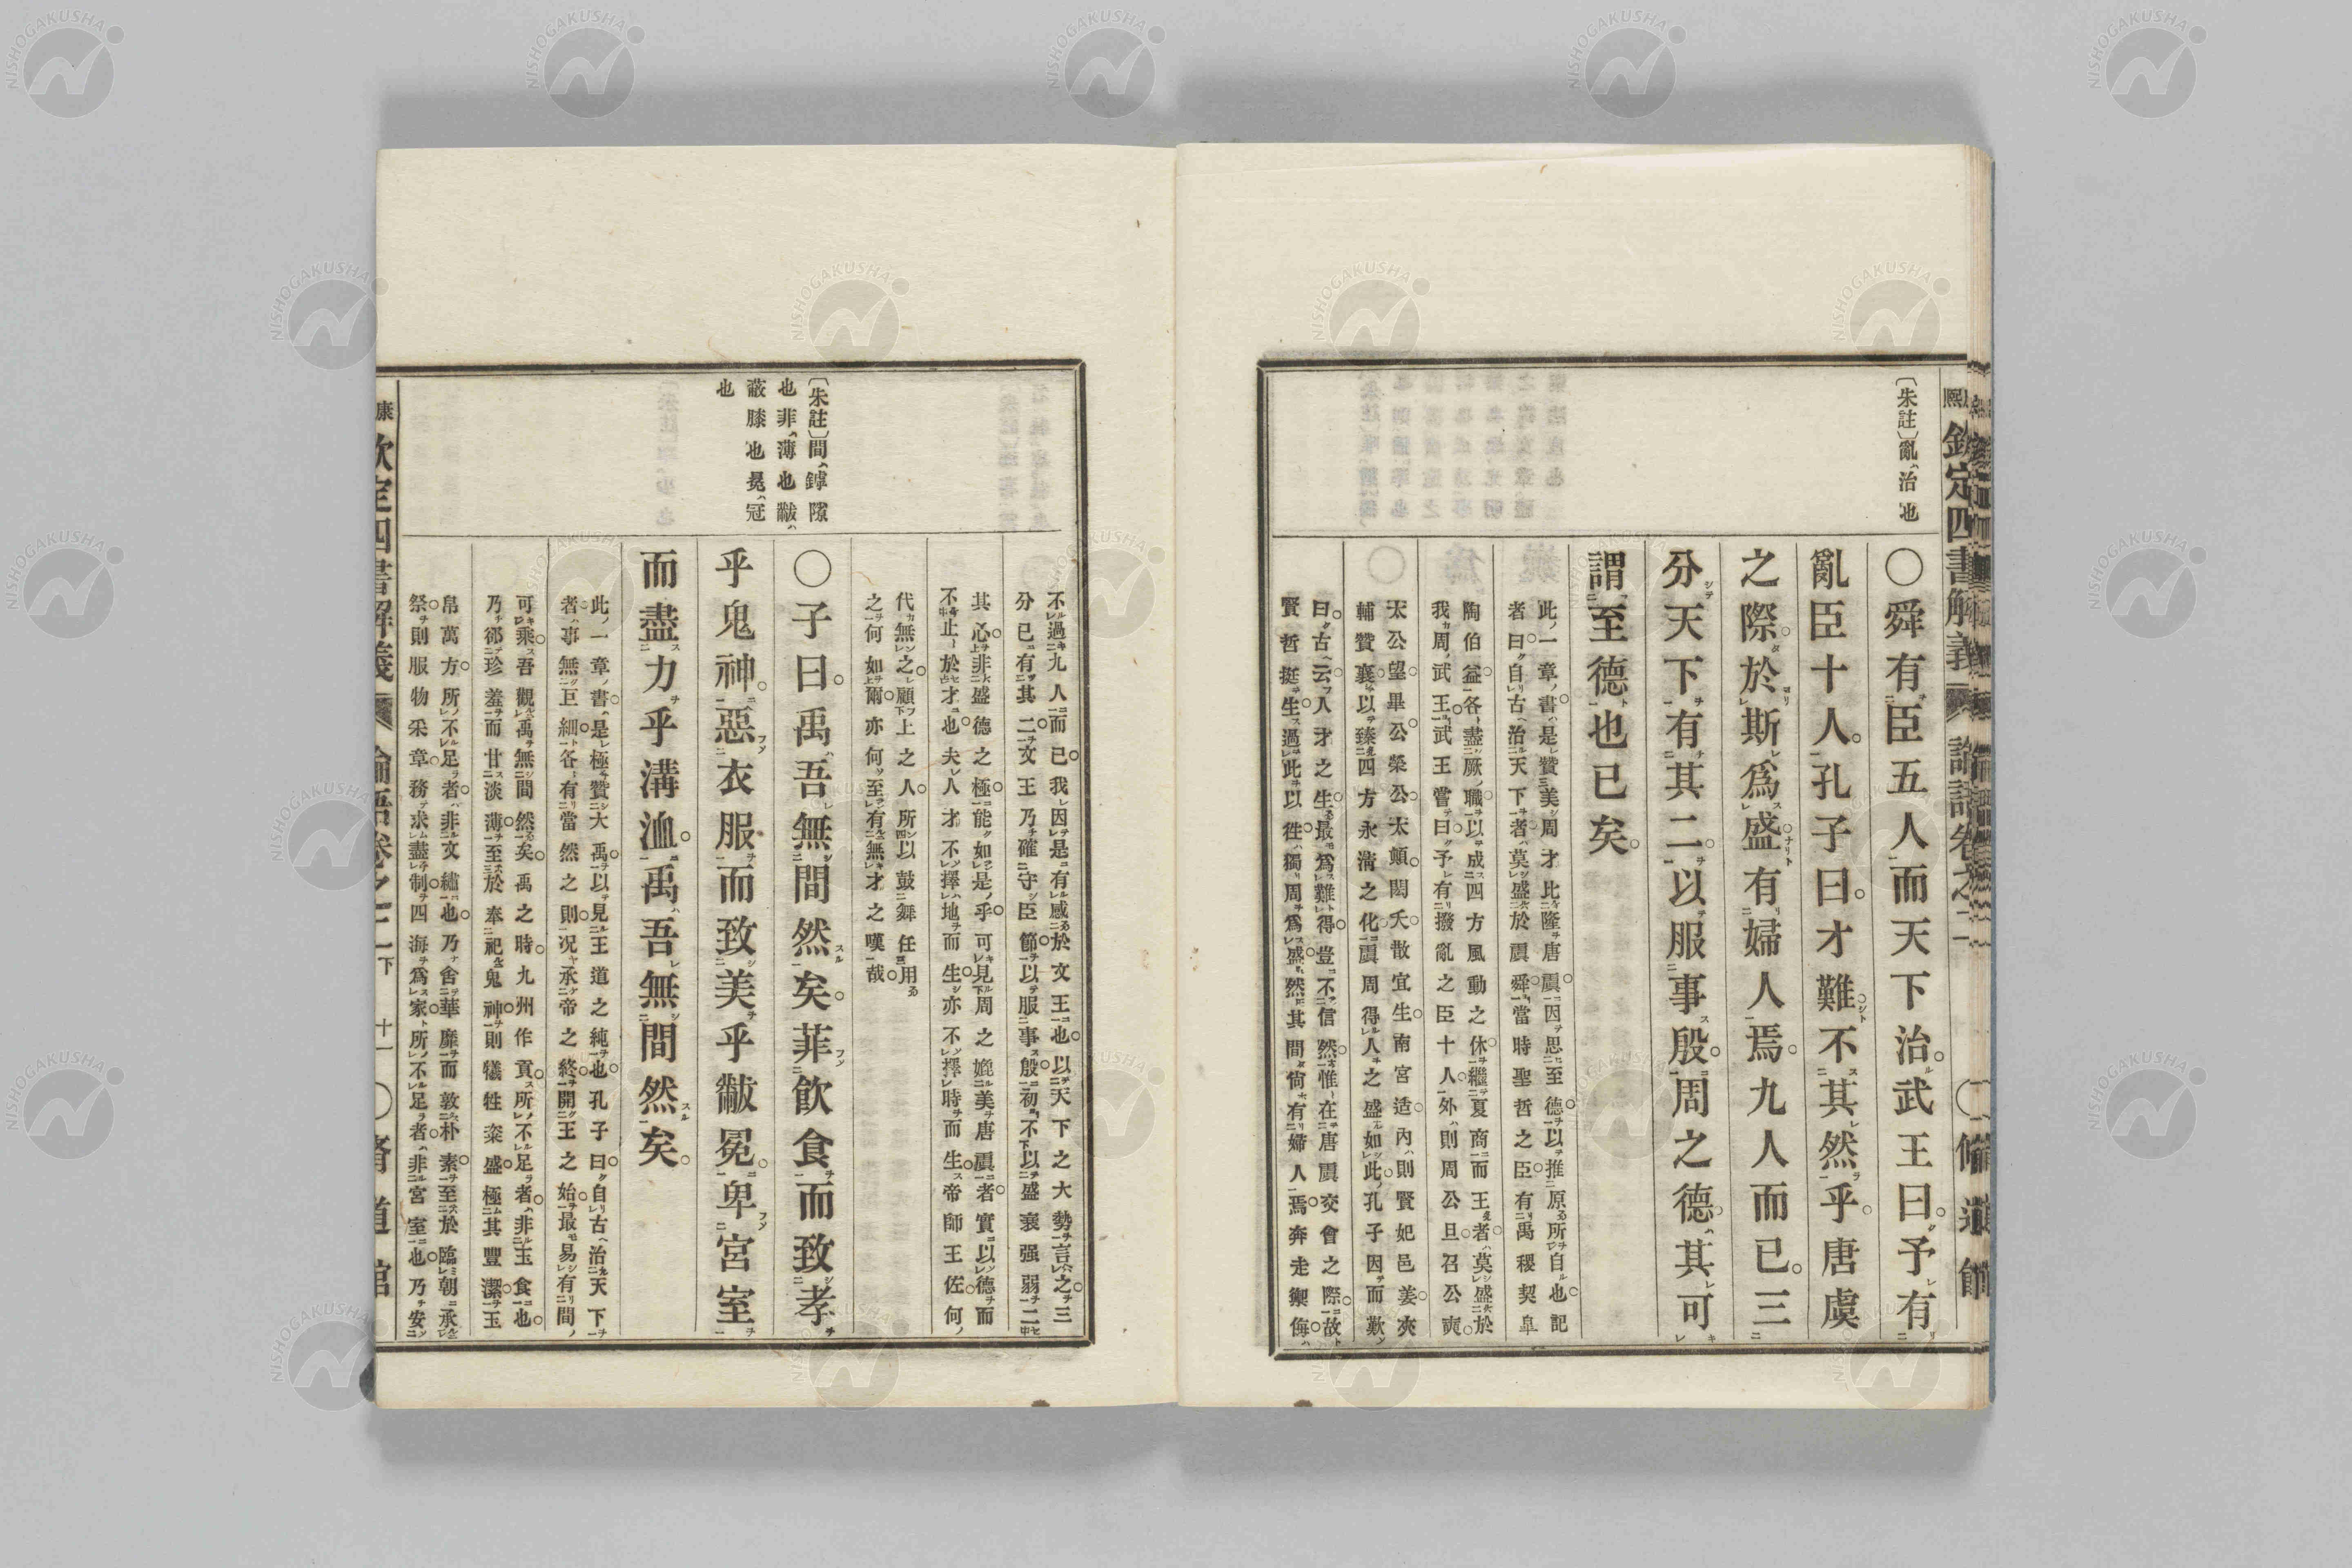 〔朱註〕亂、治也
○舜有臣五人而天下治。武王曰。予有
亂臣十人。孔子曰。才難。不其然乎。唐虞
之際。於斯爲盛。有婦人焉。九人而已。三
分天下有其二。以服事殷。周之德。其可
謂至德也已矣。
此一章書。是贊美周才比隆唐虞。因思至德。以推原所自也。記
者曰。自古治天下者。莫盛於虞舜。當時聖哲之臣。有禹稷契皐
陶伯益。各盡厥職。以成四方風動之休。繼夏商而王者。莫盛於
我周武王。武王嘗曰。予有撥亂之臣十人。外則周公旦召公奭。
太公望。畢公。榮公。太顛。閎夭。散宜生。南宮适。內則賢妃邑姜。夾
輔贊襄。以臻四方永淸之化。虞周得人之盛如此。孔子因而歎
曰。古云。人才之生。最爲難得。豈不信然。惟在唐虞交會之際。故
賢哲挺生。過此以往。獨周爲盛。然其間尙有婦人焉。奔走禦侮。
不過九人而已。我因是有感於文王也。以天下之大勢言之。三
分已有其二。文王乃確守臣節。以服事殷。初不以盛衰强弱二
其心。非盛德之極。能如是乎。可見周之媲美唐虞者。實以德而
不止於才也。夫人才不擇地而生。亦不擇時而生。帝師王佐。何
代無之。顧上之人。所以鼓舞任用
之何如爾。亦何至有無才之嘆哉。
〔朱註〕間、罅隙
也非、薄也黻、
蔽膝也冕、冠
也
○子曰。禹吾無間然矣。菲飮食而致孝
乎鬼神。惡衣服而致美乎黻冕。卑宮室
而盡力乎溝洫。禹吾無間然矣。
此一章書。是極贊大禹。以見王道之純也。孔子曰。自古治天下
者。事無巨細。各有當然之則。況承帝之終。開王之始。最易有間
可乘。吾觀禹無間然矣。禹之時。九州作貢。所不足者。非玉食也。
乃卻珍羞而甘淡薄。至於奉祀鬼神。則犧牲粢盛。極其豐潔。玉
帛萬方。所不足者。非文繡也。乃舍華靡而敦朴素。至於臨朝承
祭。則服物采章。務求盡制。四海爲家。所不足者。非宮室也。乃安